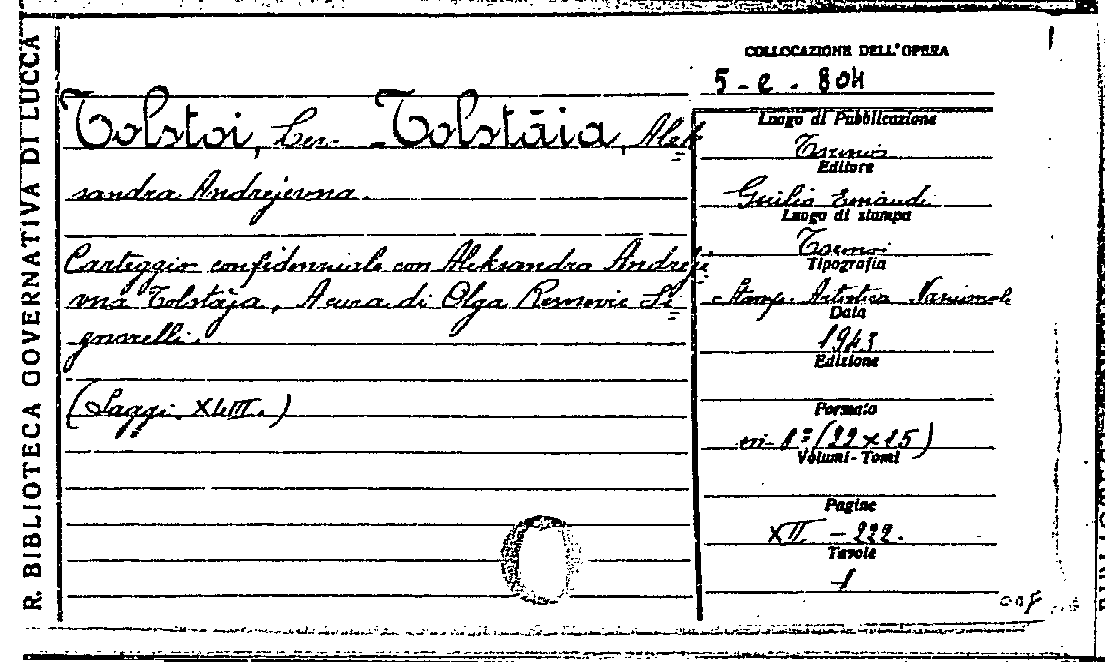 R. BIBLIOTECA GOVERNATIVA DI LUCCA
COLLOCAZIONE DELL'OPERA
5 - e - 804
Tolstoi, Lev - Tolstāia, Alek
sandra Andrejevna.
Carteggio confidenziale con Aleksandra Andreje
vna Tolstàja, A cura di Olga Resnevic Si
gnorelli.
(Saggi. XLIII.)
Luogo di Pubblicazione
Torino
Editore
Giulio Einaudi
Luogo di stampa
Torino
Tipografia
Stamp. Artistica Nazionale
Data
1943
Edizione
Formato
in-8º (22 x 15)
Volumi - Tomi
Pagine
XII - 222.
Tavole
1